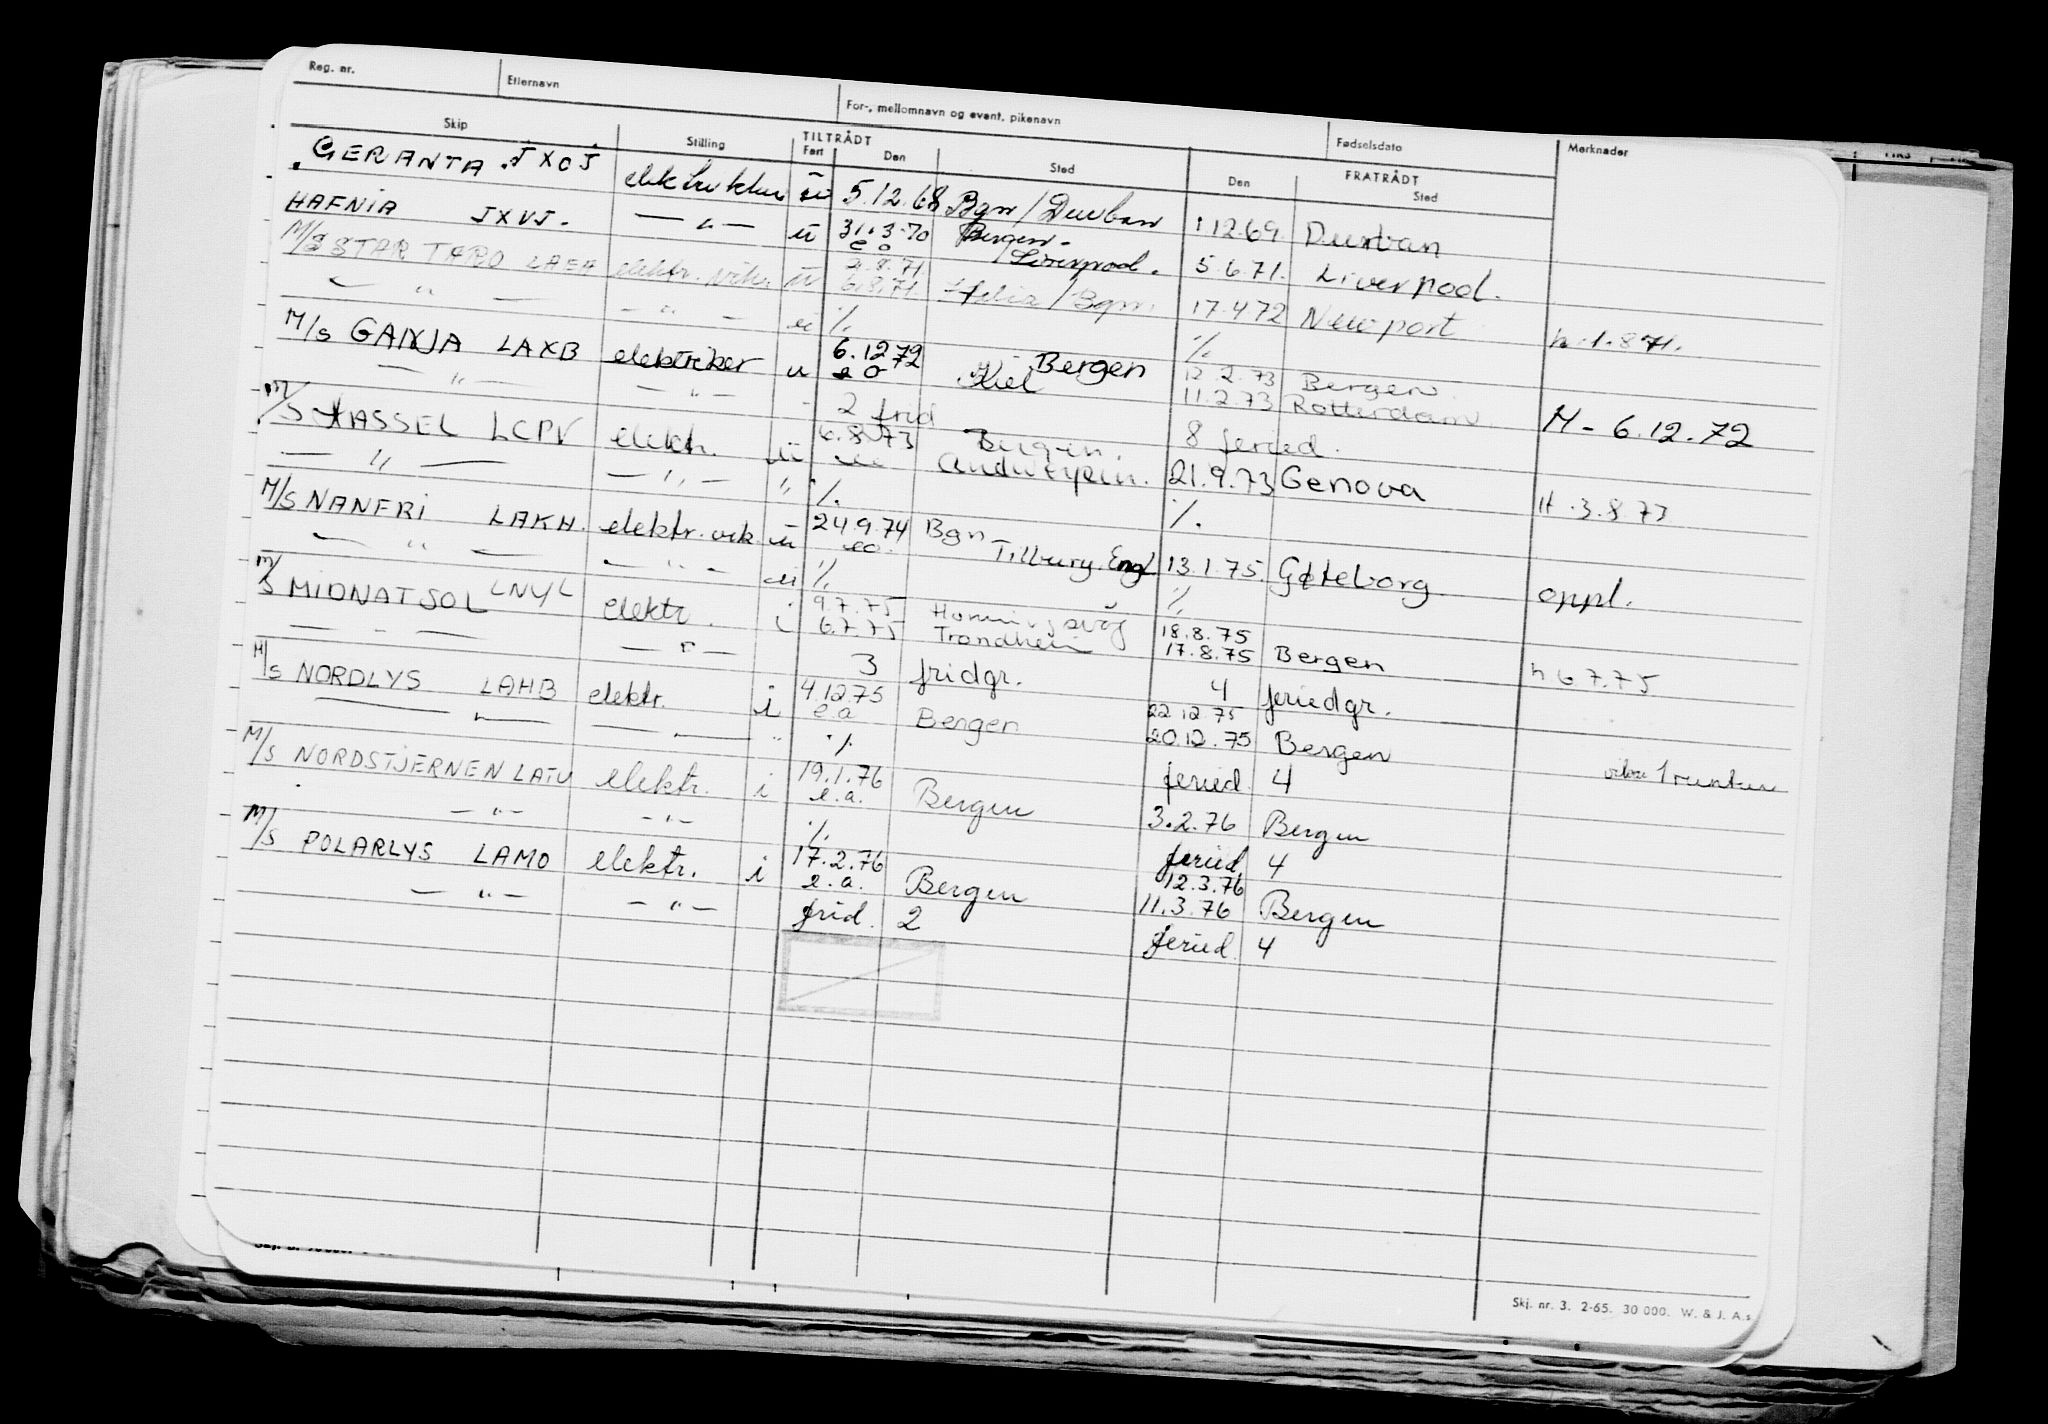 Reg. nr. Etternavn For-, mellomnavn og event. pikenavn Fødselsdato Merknader
Skip Stilling TILTRÅDT FRATRÅDT
Fart Den Sted Den Sted
GERANTA JXOJ ü 5.12.68 Bgn/Durban 1 12 69. Durban
HAFNIA JXVJ. — " — ü 31.3.70 Bergen- 5.6.71. Liverpool.
e o /Liverpool.
M/S STAR TARO LAEA elektr. vik. ü 2.8.71.
6.8.71. /Bgn. 17.4.72 Newport
— " — — " — u % % h. 1.8 71.
M/S GANJA LAXB elektriker u 6.12 72 Bergen 12.2.73 Bergen
e o Kiel 11.2.73 Rotterdam.
— " — — " — 2 frid 8 feried. M - 6.12.72
M/S KASSEL LCPV elektr. ü 6.8.73 Bergen. 21.9.73 Genova
Andwerpen.
— " — — " — " %. %. H. 3.8 73
M/S NANFRI LAKH. elektr. vik. ü 24.9.74 Bgn 13.1.75. Gøteborg
eo. Tilbury. Engl
— " — — " — ü % % oppl.
M/S MIDNATSOL LNYL elektr. i 9.7.75 Honningsvåg 18.8.75
6.7.75 Trondheim 17.8.75 Bergen
— " — — " — 3 fridgr. 4 feriedgr. h 6.7.75
M/S NORDLYS LAHB elektr. i 4.12.75 22 12.75
e.a Bergen 20.12.75 Bergen
— " — — " — " % feried. 4 1 runtur
M/S NORDSTJERNEN LATU elektr. i 19.1.76
e.a. Bergen 3.2.76 Bergen
— " — — " — % feried. 4
M/S POLARLYS LAMO elektr. i 17.2.76 12.3.76
e.a. Bergen 11.3.76 Bergen
— " — — " — frid. 2 feried. 4
Skj. nr. 3. 2-65. 30 000. W. & J. A.s